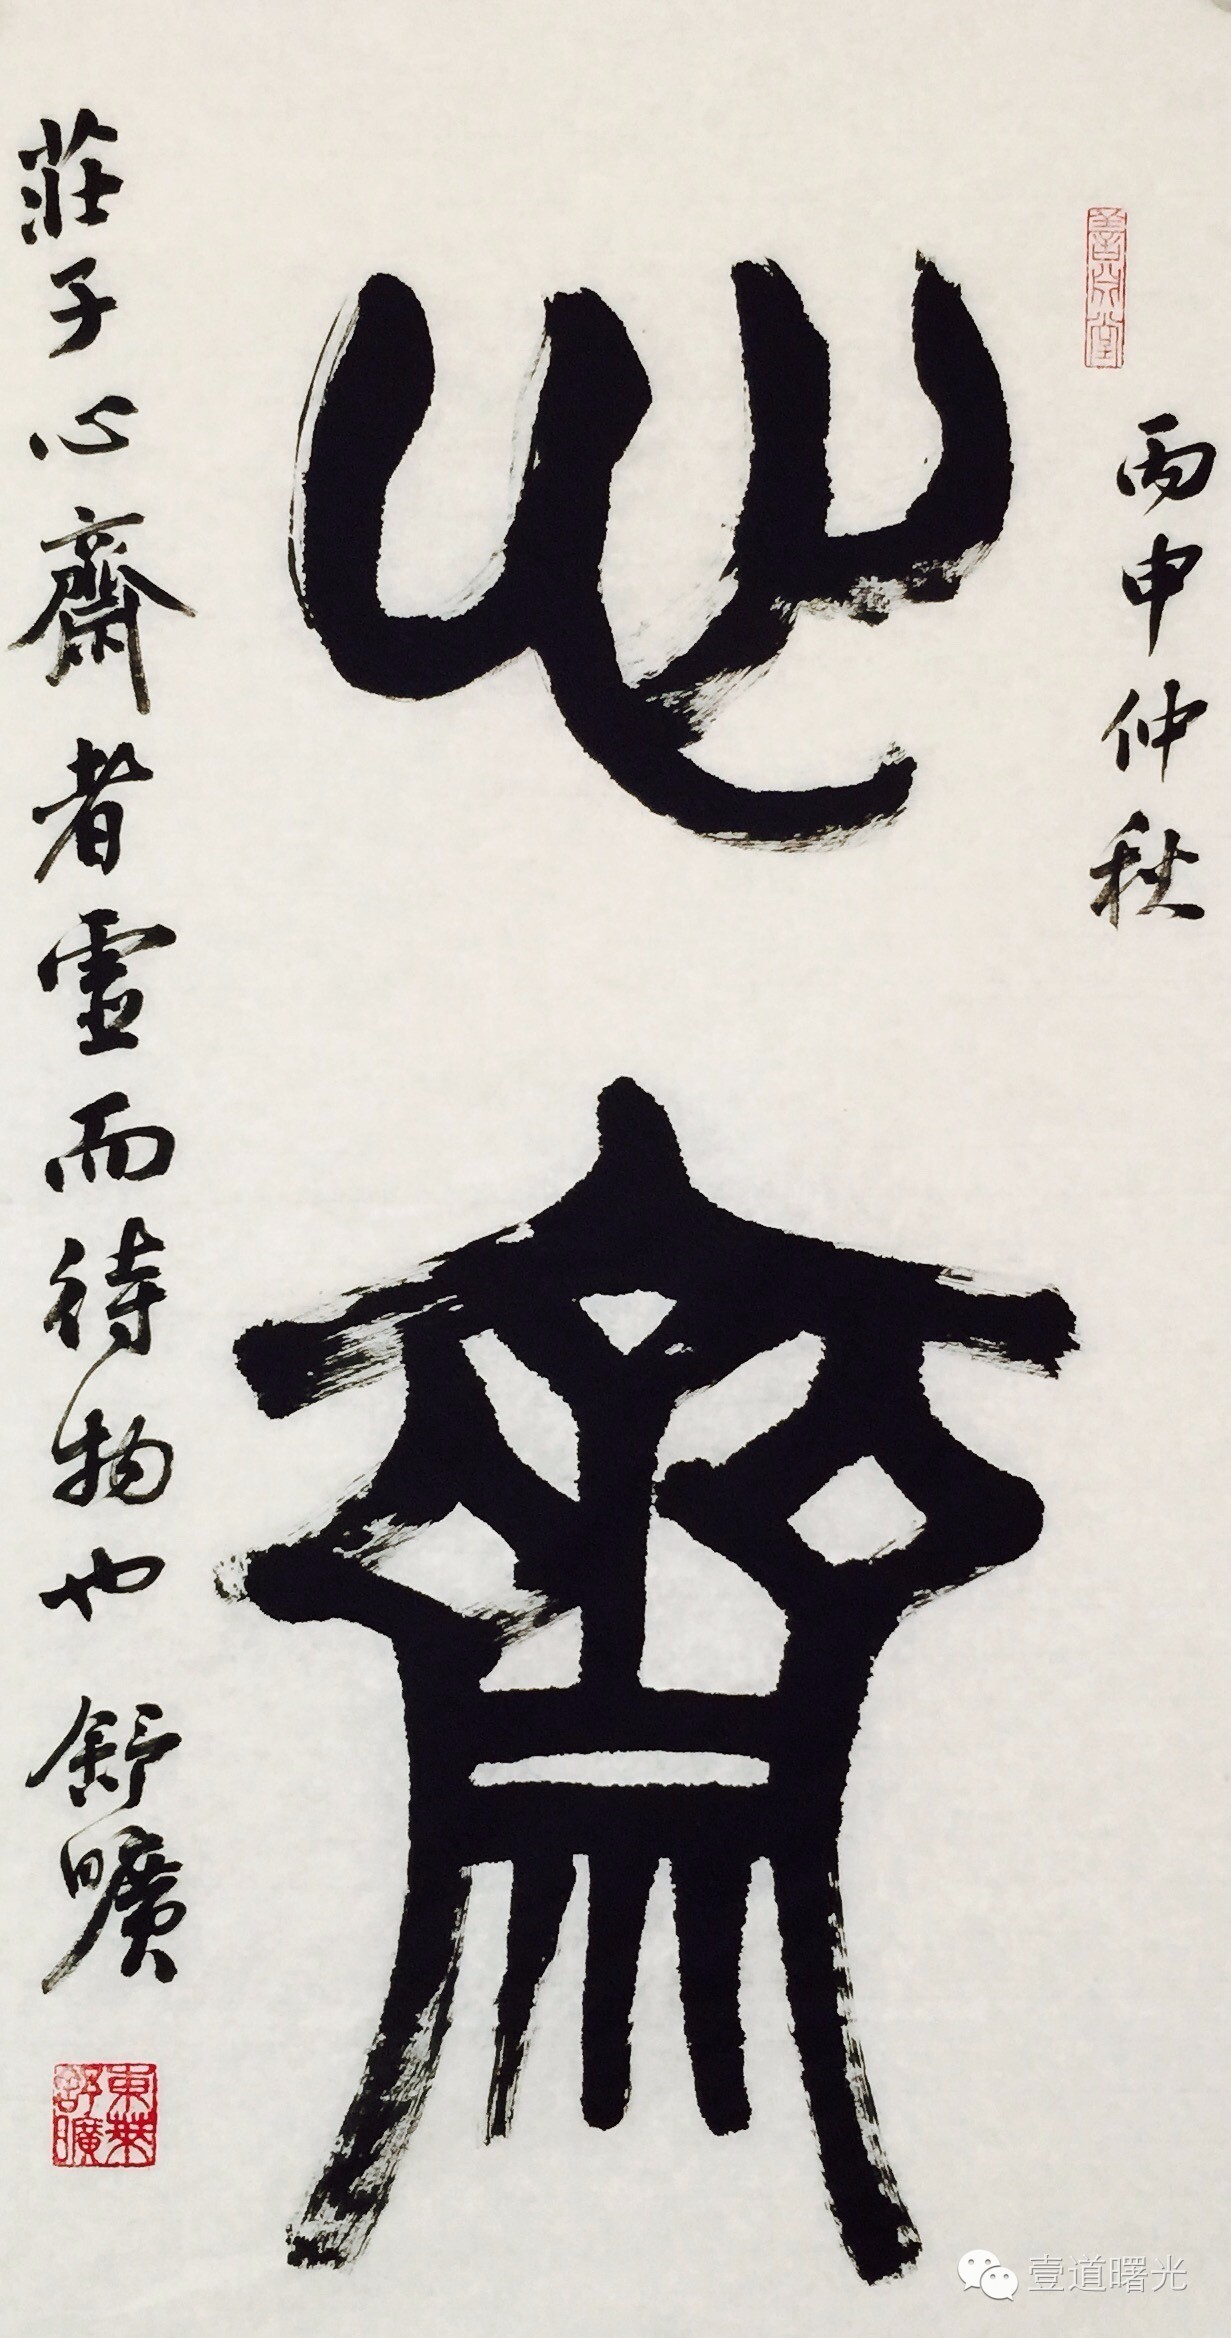 丙申仲秋
心齋
莊子心齋者虛而待物也 舒曠
東萊舒曠
壹道曙光